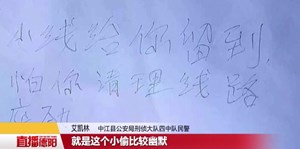 小线给你留到,
怕你清理线路
麻烦
艾凯林 中江县公安局刑侦大队四中队民警
直播德阳
就是这个小偷比较幽默